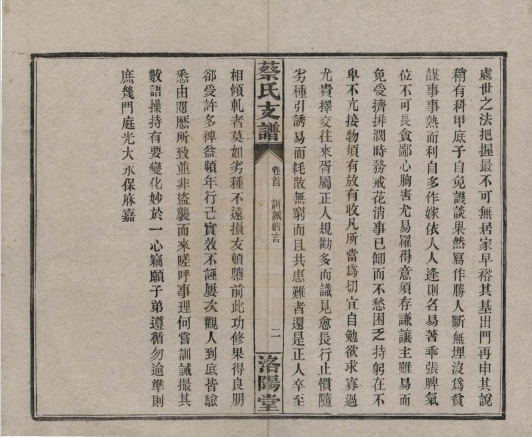 處世之法把握最不可無居家早裕其基出門再申其說
稍有科甲底子自免譏談果然寫作勝人斷無埋沒為貧
謀事事熟而利自多作嫁依人人逢則名易著乖張脾氣
位不可長貪鄙心胸害尤易罹得意須存謙讓主難易而
免受擠排潤時務戒花消事已卸而不愁困乏持躬在不
卑不亢接物須有放有收凡所當為切宜自勉欲求寡過
尤貴擇交往來胥屬正人規勸多而識見愈長行止慣隨
劣種引誘易而耗散無窮而且共患難者還是正人卒至
蔡氏支譜
卷首
訓誡約言
二
洛陽堂
相傾軋者莫如劣種不遠損友頓墮前此功修果得良朋
卻受許多裨益頻年行己實效不誣屢次觀人到底皆驗
悉由閱歷所致並非盜襲而來嗟呼事理何嘗訓誡撮其
數語操持有要變化妙於一心竊願子弟遵循勿逾準則
庶幾門庭光大永保庥嘉